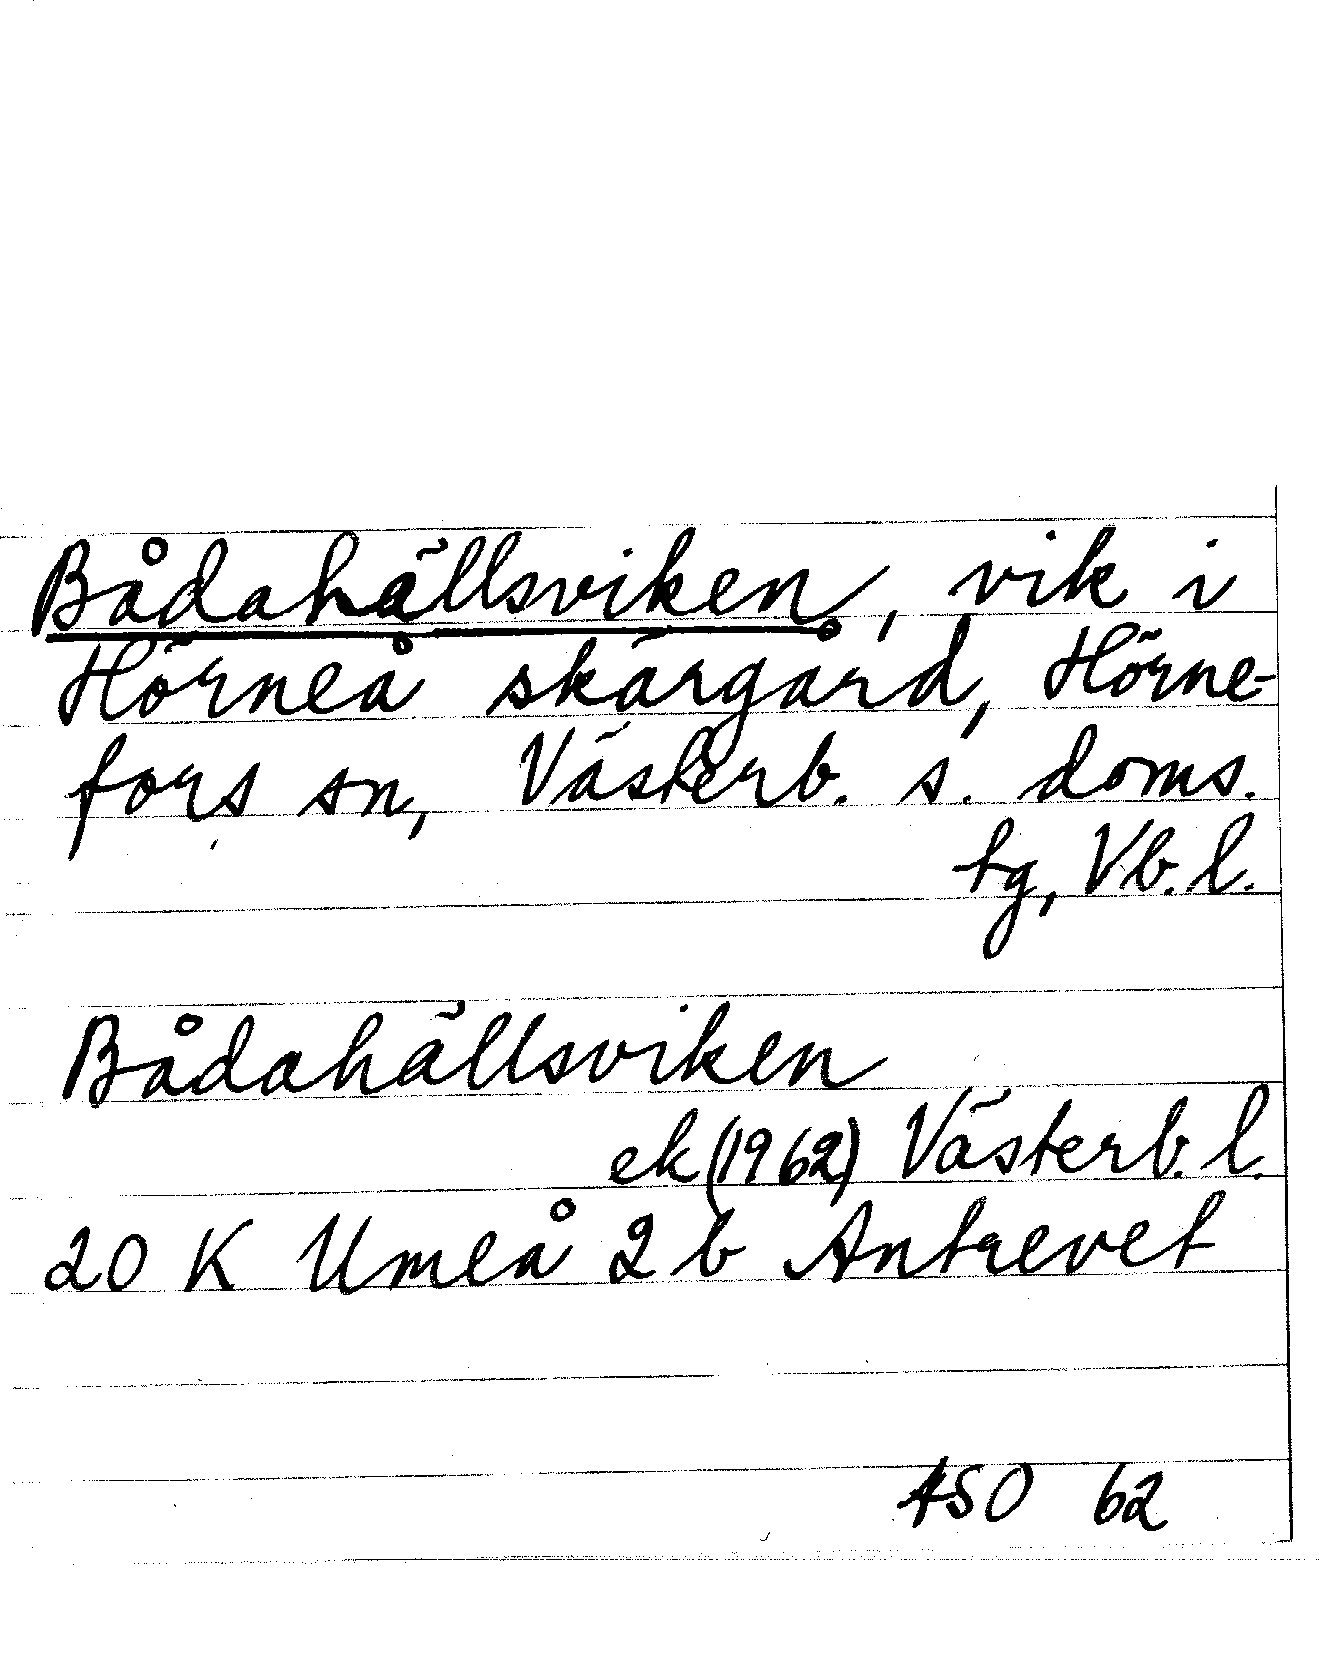 Bådahällsviken, vik i
Hörneå skärgård, Hörne-
fors sn, Västerb. s. doms.
tg, Vb. l.
Bådahällsviken
ek (1962) Västerb. l.
20 K Umeå 2 b Antrevet
ASO 62